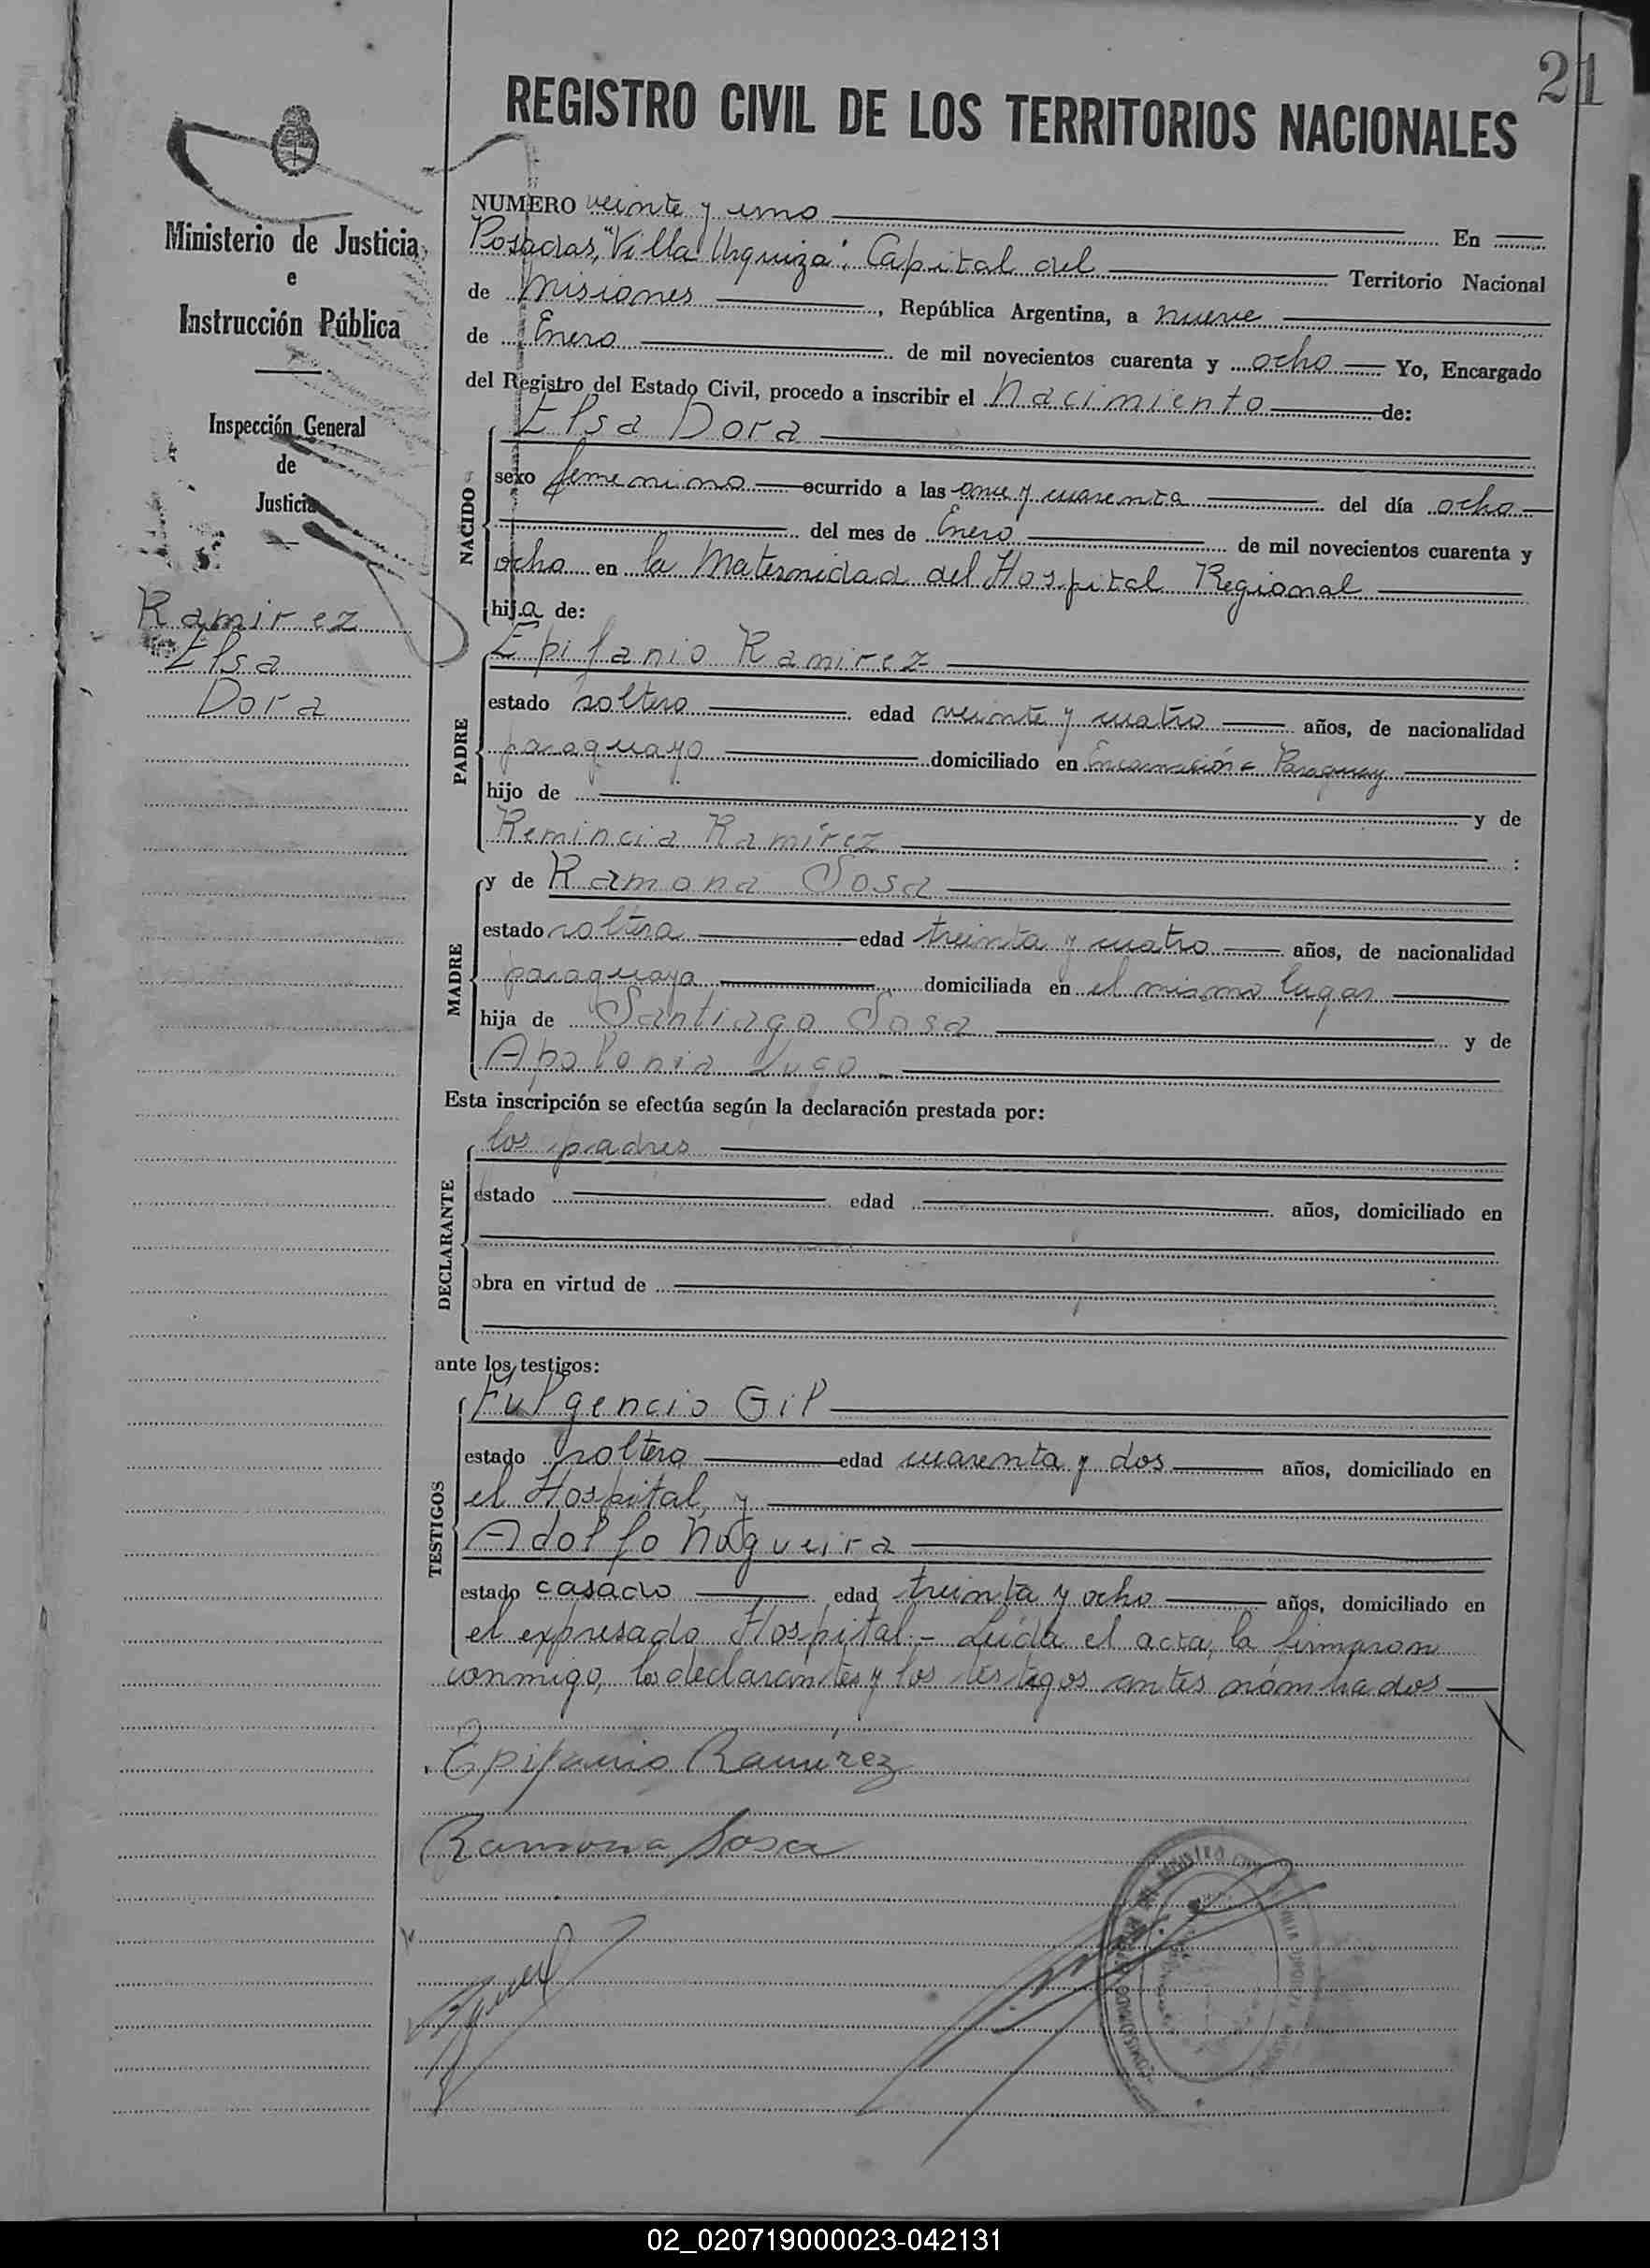 21
REGISTRO CIVIL DE LOS TERRITORIOS NACIONALES
Ministerio de Justicia
e
Instrucción Pública
Inspección General
de
Justicia
Ramirez
Elsa
Dora
NUMERO veinte y uno En
Posadas, "Villa Urquiza". Capital del Territorio Nacional
de Misiones, República Argentina, a nueve
de Enero de mil novecientos cuarenta y ocho Yo, Encargado
del Registro del Estado Civil, procedo a inscribir el Nacimiento de:
NACIDO
Elsa Dora
sexo femenino ocurrido a las once y cuarenta del día ocho
del mes de Enero de mil novecientos cuarenta y
ocho en la Maternidad del Hospital Regional
hija de:
PADRE
Epifanio Ramirez
estado soltero edad veinte y cuatro años, de nacionalidad
paraguayo domiciliado en Encarnación - Paraguay
hijo de y de
Remincia Ramírez :
MADRE
y de Ramona Sosa
estado soltera edad treinta y cuatro años, de nacionalidad
paraguaya domiciliada en el mismo lugar
hija de Santiago Sosa y de
Apolonia Lugo
Esta inscripción se efectúa según la declaración prestada por:
DECLARANTE
los padres
estado edad años, domiciliado en
obra en virtud de
ante los testigos:
TESTIGOS
Fulgencio Gil
estado soltero edad cuarenta y dos años, domiciliado en
el Hospital, y
Adolfo Nogueira
estado casado edad treinta y ocho años, domiciliado en
el expresado Hospital.- Leída el acta, la firmaron
conmigo, los declarantes y los testigos antes nombrados
Epifanio Ramírez
Ramona Sosa
02_020719000023-042131